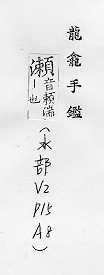 龍龕手鑑
瀨
音賴湍
也
(水部
V2
P15
A8)